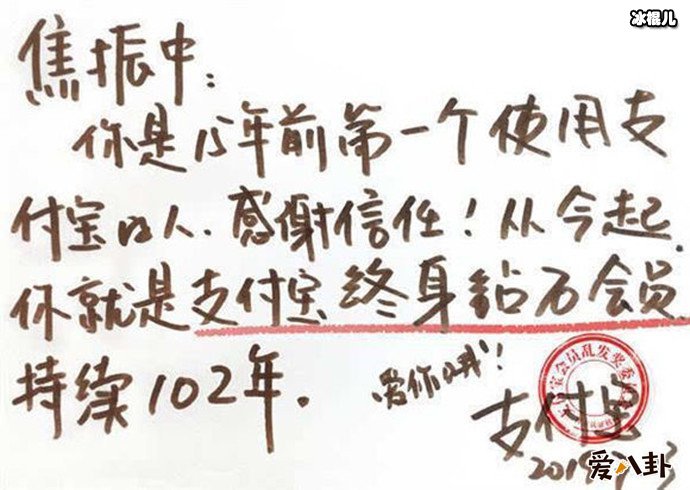 冰棍儿
焦振中:
你是15年前第一个使用支
付宝的人.感谢信任!从今起.
你就是支付宝终身钻石会员.
持续102年.
爱你哦!
宝会员乱发奖委
支付宝
2019
爱八卦